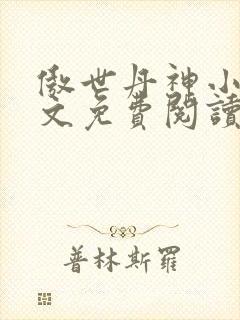 傲世丹神小
文免費閱讀
普林斯羅